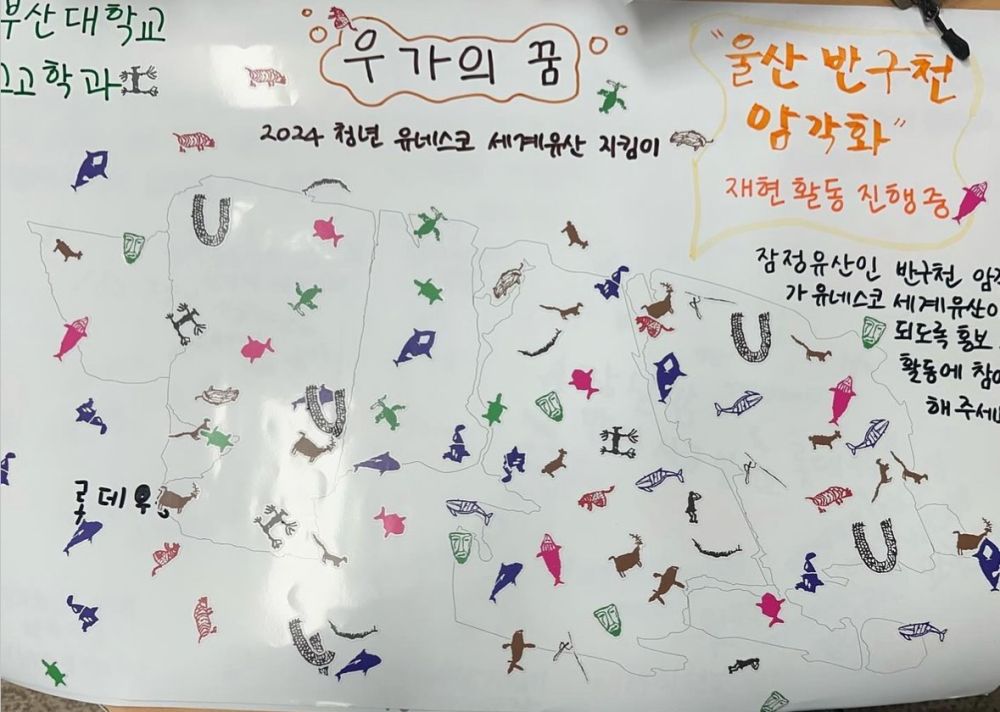 부산대학교
고고학과
우가의 꿈
2024 청년 유네스코 세계유산 지킴이
"울산 반구천
암각화"
재현 활동 진행중
잠정유산인 반구천 암각
가 유네스코 세계유산이
되도록 홍보
활동에 참여
해주세요
로데오